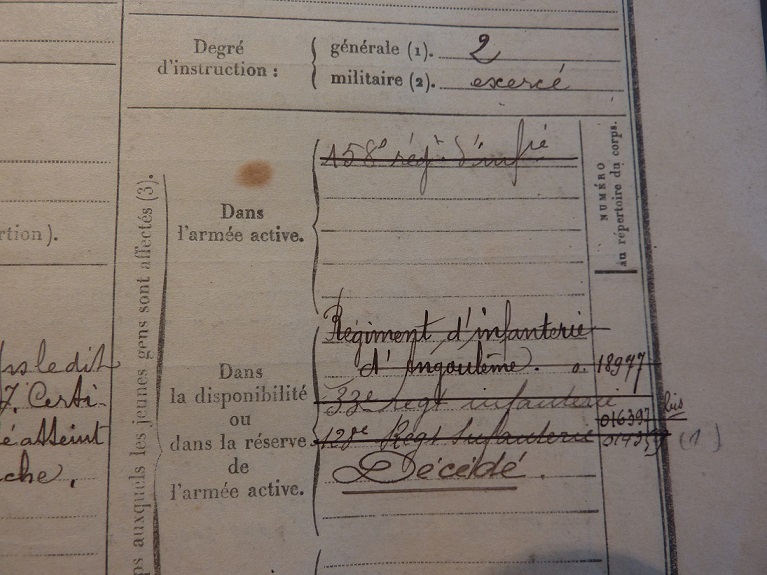 Degré
d'instruction :
générale (1). 2
militaire (2). exercé
NUMÉRO
au répertoire du corps.
ps auxquels les jeunes gens sont affectés (3).
rtion).
Dans
l'armée active.
158e régt d'infie
Dans
la disponibilité
ou
dans la réserve
de
l'armée active.
Régiment d'infanterie
d'Angoulême. o. 18977
33e regt infanterie
016397 bis
123e Regt Infanterie (1)
Décédé.
ledit
7. Certi-
atteint
che.